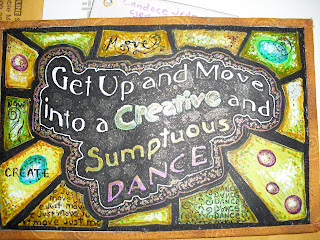 Candace Jed
Move
Get Up and Move
into a Creative and
Sumptuous
DANCE
CREATE
Just
move
Just move
Just move
move Just
DANCE
DANCE